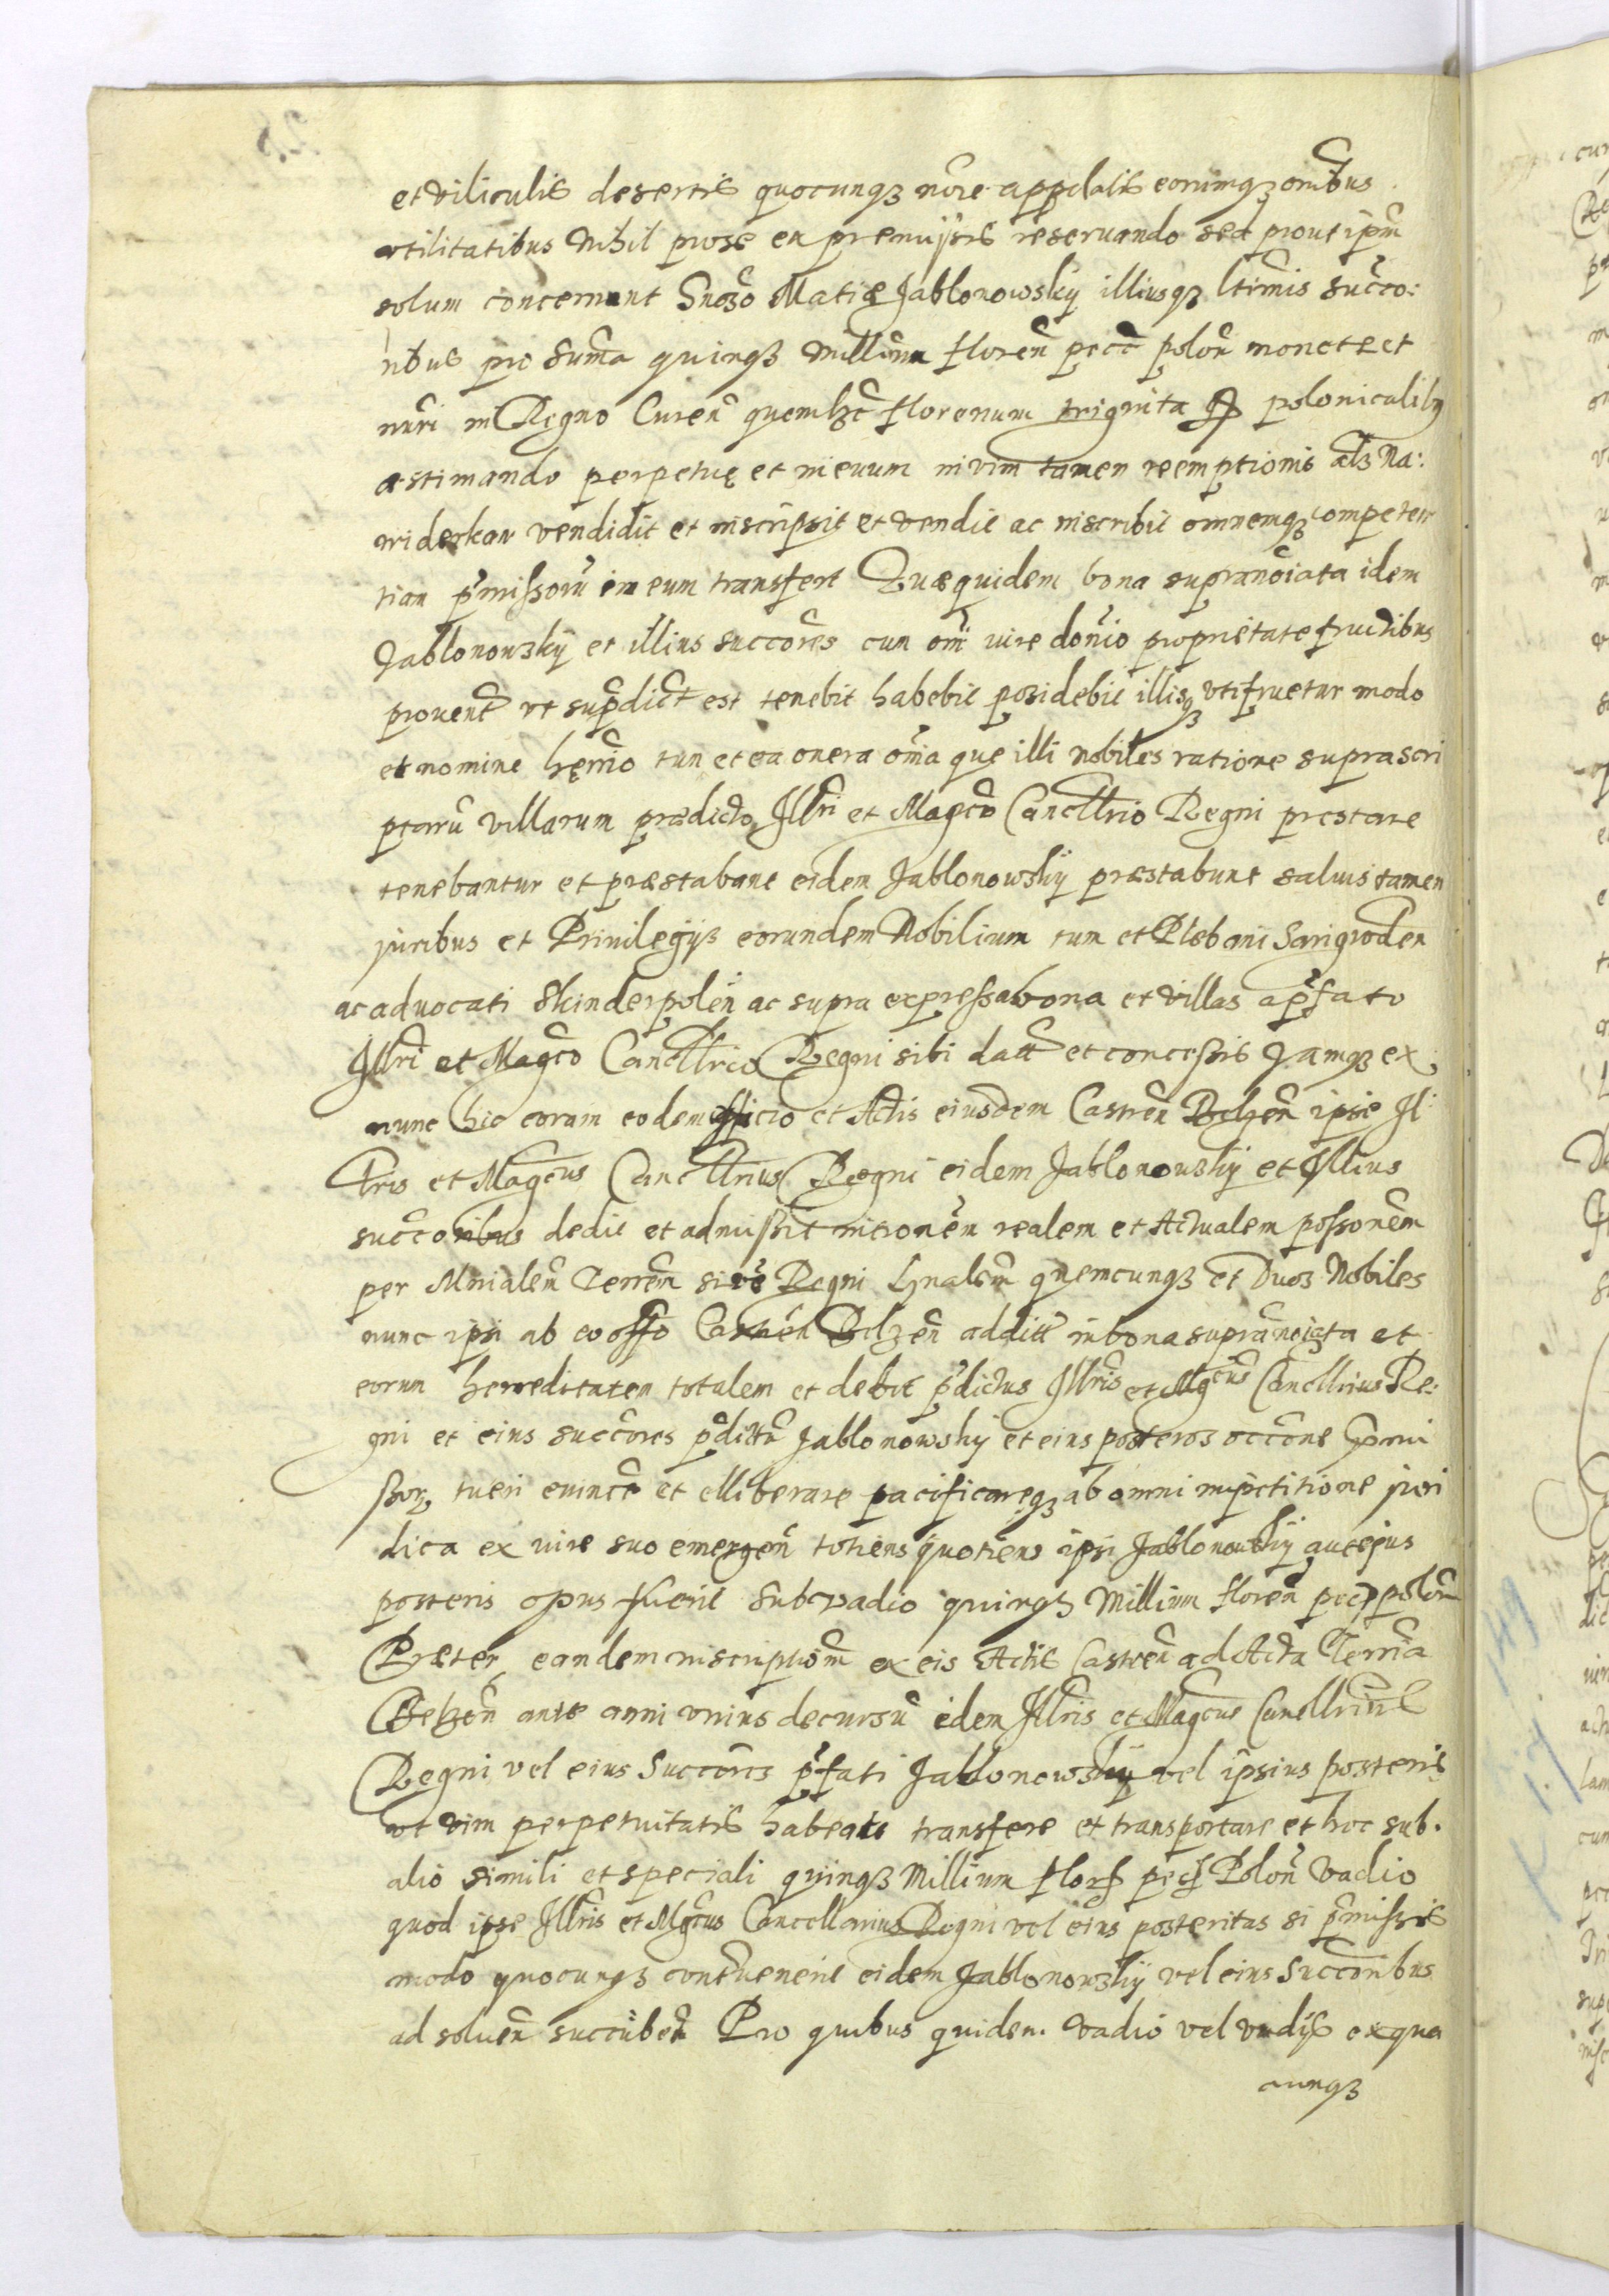 et villiculis desertis quocunqз noie appellatis eorumqз omibus
vtilitatibus Nihil pro se ex premijssis reseruando sed prout ipm
solum concernunt Gnoso Matiæ Jablonowsky illiusqз ltimis succo:
ribus pro summa quinqз millium floren pecc polon monete et
nuri in Regno Curen quemlзt florenum triginta gr polonicalibus
æstimando perpetuę et in euum in vim tamen reemptionis als Na:
widerkaw vendidit et inscripsit et vendit ac inscribit omnemqз competen
tiam pmissoru in eum transfert Quæquidem bona supranoiata idem
Jablonowsky et illius succores cum omi iure domio proprietate fructibus
prouent vt supradict est tenebit habebit posidebit illisqз vtifruetur modo
et nomine hęrrio tum et ea onera omia que illi Nobiles ratione suprascri
ptoru villarum prædicto Illri et Magco Cancllrio Regni prestare
tenebantur et præstabant eidem Jablonowsky præstabunt saluis tamen
juribus et Priuilegijs eorundem Nobilium tum et Plebani Sarigroden
ac aduocati Skinderpolen ac supra expressa bona et villas a pfato
Illri et Magco Cancllrio Regni sibi datt et concessis Jamqз ex
nunc hic coram eodem officio et Actis eiusdem Castren Belzen ipse Il
lris et Magcus Cancllrius Regni eidem Jablonowsky et Illius
succoribus dedit et admissit intionem realem et Actualem possonem
per Mnialem Terrem siue Regni Gnalem quemcunqз et Duos Nobiles
nunc ipsi ab eo offo Castren Belzen additt in bona supranoiata et
eorum herreditatem totalem et debit pdictus Illris et Mgcus Cancllrius Re:
gni et eius succores pdictu Jablonowsky et eius posteros occone pmi
ssor tueri euincere et elliberare pacificareqз ab omni impetitione juri
dica ex iure suo emergen totiens quotiens ipsi Jablonowsky aut ejus
posteris opus fuerit sub vadio quinqз Millium floren pecc polon
Præter eandem inscriptiom ex eis Actis Castren ad Acta Terria
Belzen ante anni vnius decursu idem Illris et Magcus Cancllrius
Regni vel eius Succores pfati Jablonowsky vel ipsius posteris
vt vim perpetuitatis habeat transfere et transportare et hoc sub.
alio simili et speciali quinqз Millium flor pec Polon Vadio
quod ipse Illris et Mgcus Cancellarius Regni vel eius posteritas si pmissis
modo quocunqз contuenerit eidem Jablonowsky vel eius Succoribus
ad soluen succuben Pro quibus quidem Vadio vel vadijs ex qua
cunqз